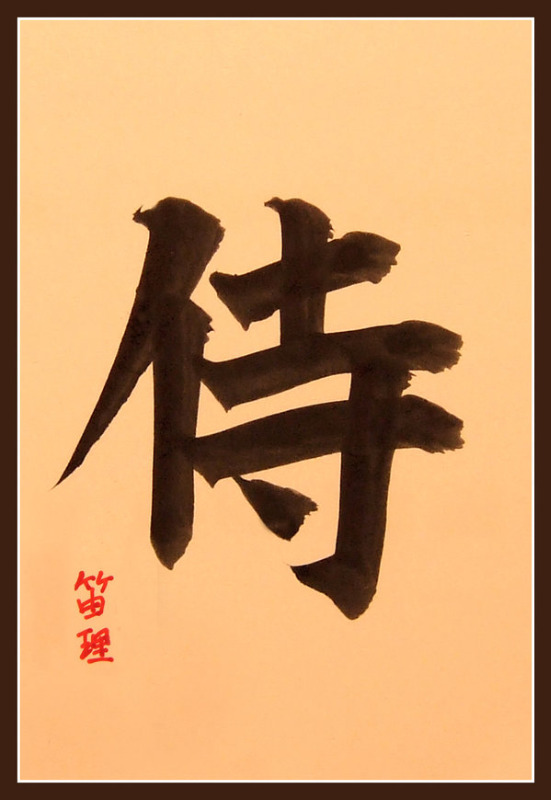 侍
笛理